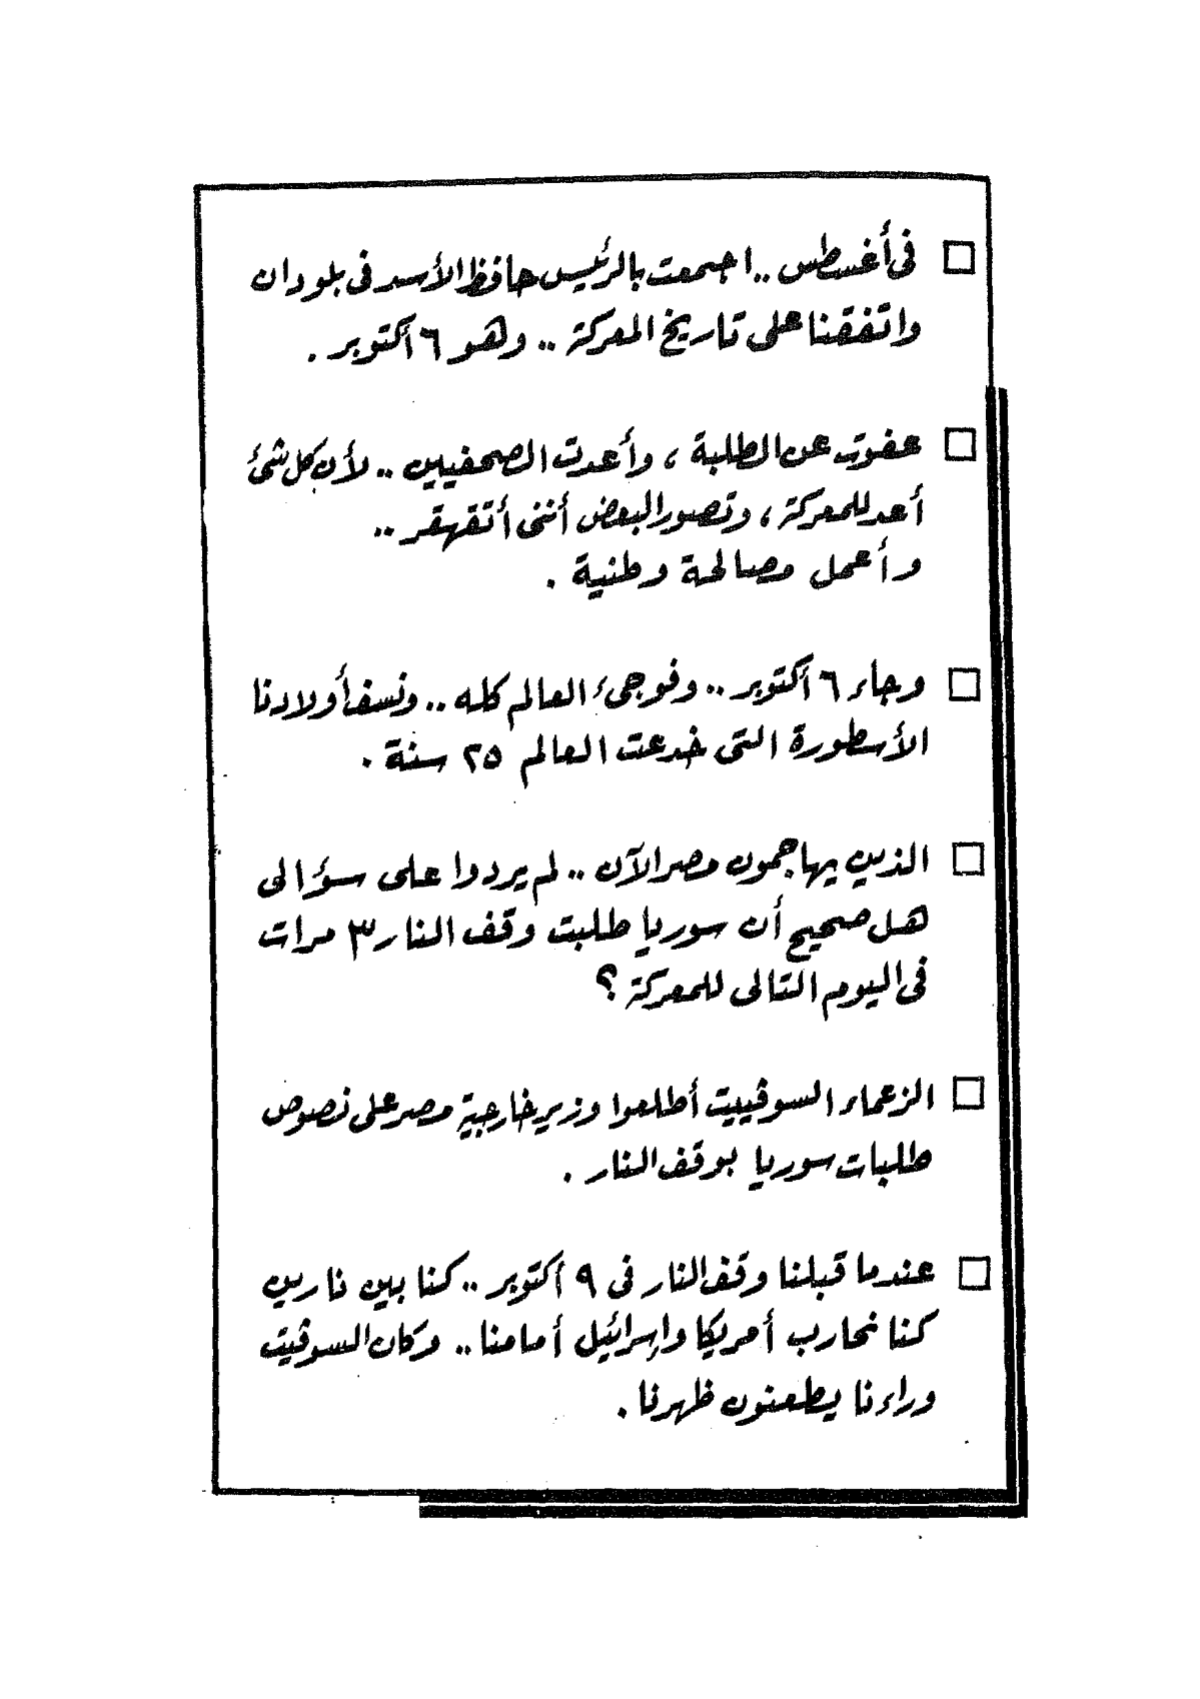 □ فى أغسطس .. اجتمعت بالرئيس حافظ الأسد فى بلودان
واتفقنا على تاريخ المعركة .. وهو ٦ أكتوبر .
□ عفوت عن الطلبة ، وأعدت الصحفيين .. لأن كل شئ
أعد للمعركة ، وتصور البعض أننى أتقهقر ..
وأعمل مصالحة وطنية .
□ وجاء ٦ أكتوبر .. وفوجىء العالم كله .. ونسف أولادنا
الأسطورة التى خدعت العالم ٢٥ سنة .
□ الذين يهاجمون مصر الآن .. لم يردوا على سؤالى
هل صحيح أن سوريا طلبت وقف النار ٣ مرات
فى اليوم التالى للمعركة ؟
□ الزعماء السوڤييت أطلعوا وزير خارجية مصر على نصوص
طلبات سوريا بوقف النار .
□ عندما قبلنا وقف النار فى ٩ أكتوبر .. كنا بين نارين
كنا نحارب أمريكا وإسرائيل أمامنا .. وكان السوڤيت
وراءنا يطعنون ظهرنا .